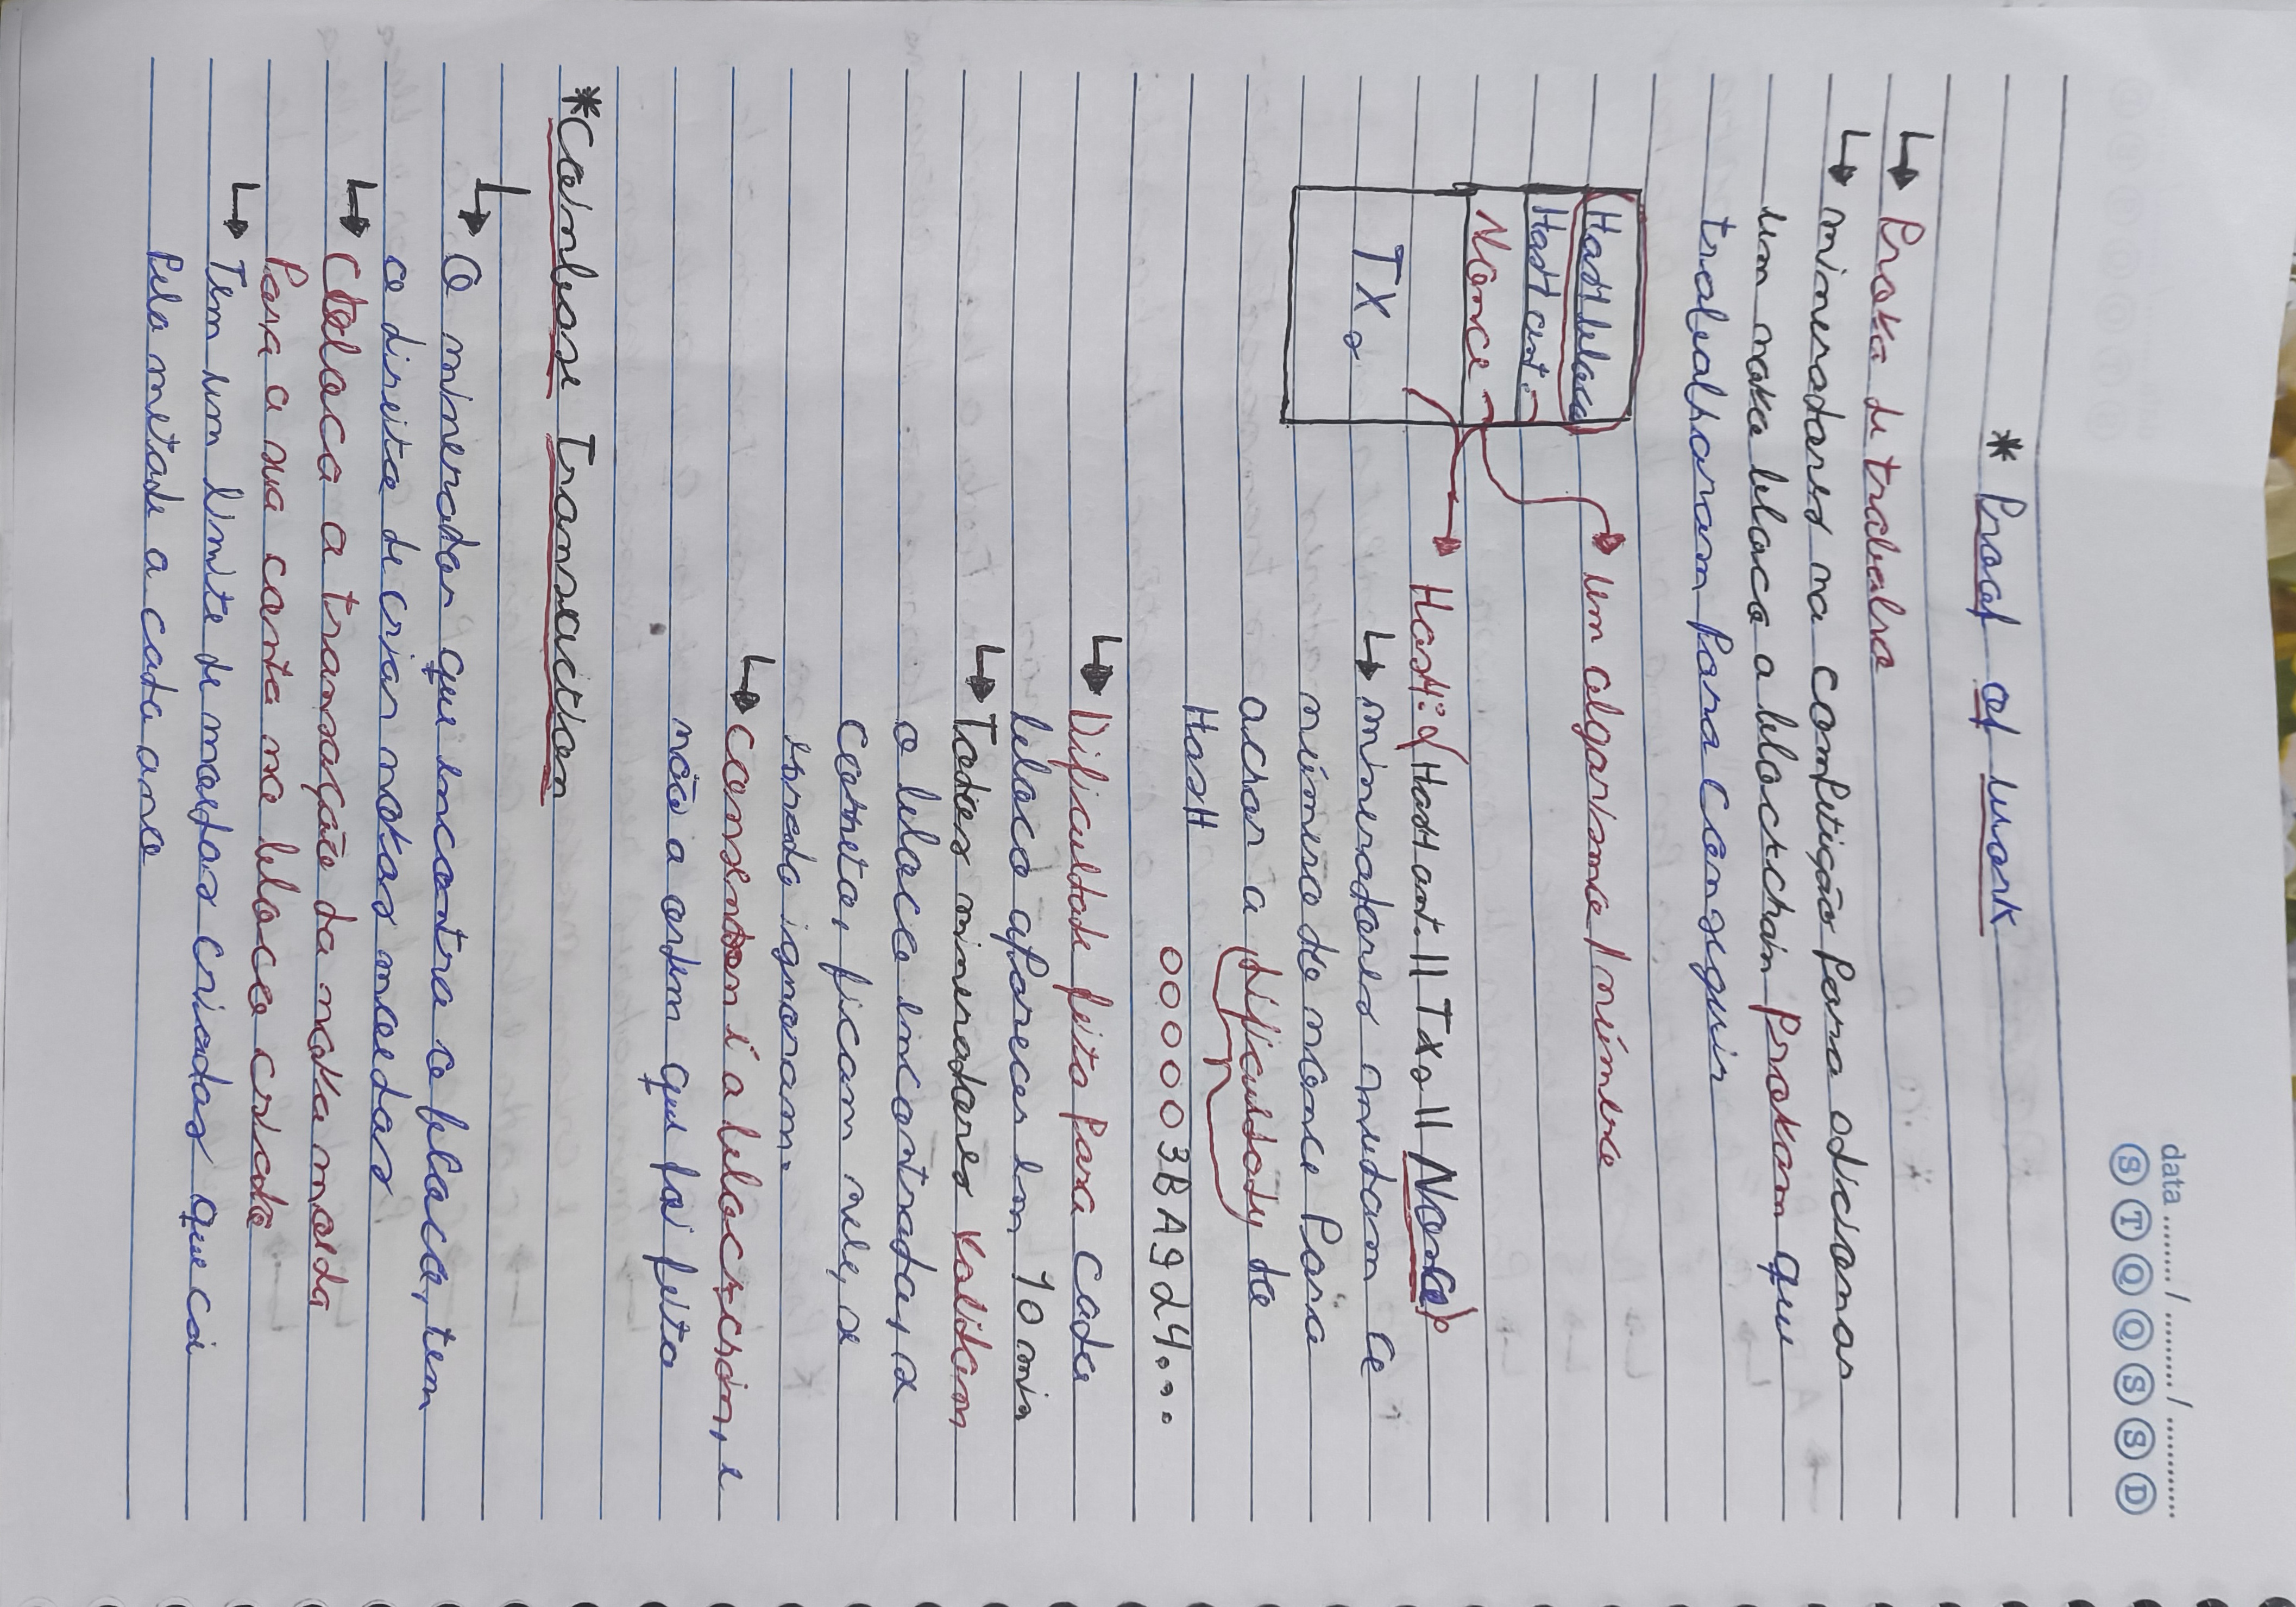 data ........ / ......... / ............
S T Q Q S S D
* Proof of work
↳ Prova de trabalho
↳ mineradores na competição para adicionar
um novo bloco a blockchain provam que
trabalharam para conseguir
Hash bloco
Hash ant.
Nonce
TXs
um algarismo / número
Hash: (Hash ant. || TXs || Nonce)
↳ mineradores mudam o
número do nonce para
achar a dificuldady do
Hash
000003BA9d4...
↳ Dificuldade feita para cada
bloco aparecer em 10 min
↳ Todos mineradores validam
o bloco encontrado, se
correto, ficam nele, se
errado ignoram.
↳ é a blockchain, e
não a ordem que foi feito
*Coinbase Transaction
↳ O minerador que encontra o bloco, tem
o direito de criar novas moedas
↳ Coloca a transação da nova moeda
para a sua conta no bloco criado
↳ Tem um limite de moedas criadas que cai
pela metade a cada ano